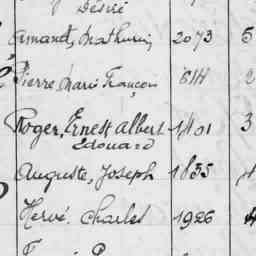 Désiré
Armand, Mathurin 2073 5
Pierre Marie François 814 2
Roger, Ernest Albert 1401 3
Edouard
Auguste, Joseph 1835 4
Hervé Charles 1926 4